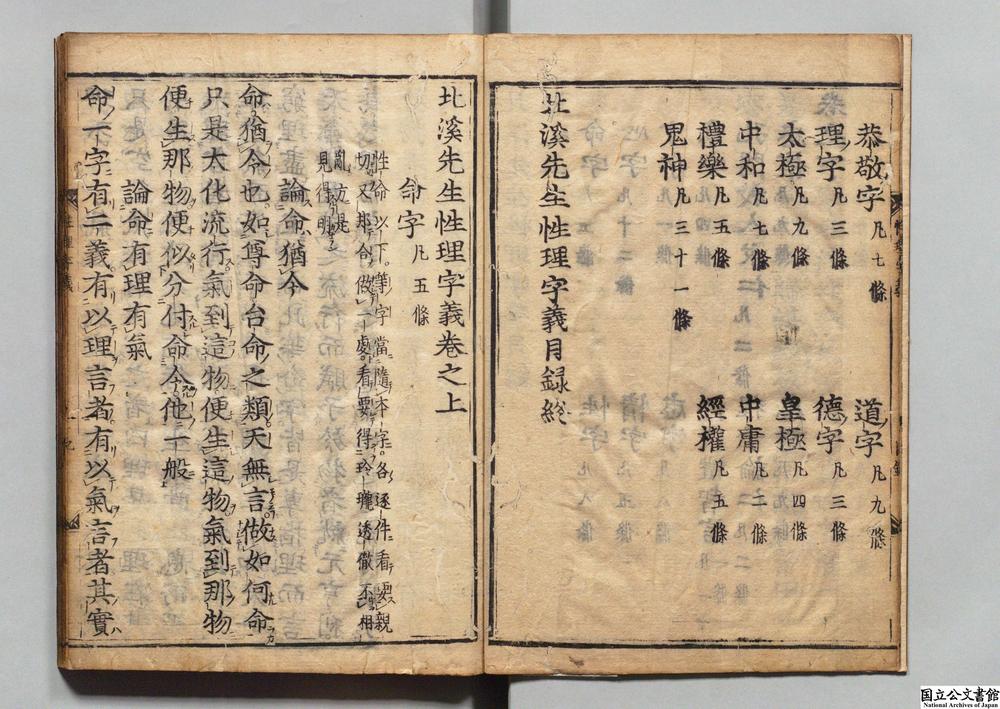 恭敬字 凡七條 道字 凡九條
理字 凡三條 德字 凡三條
太極 凡九條 皇極 凡四條
中和 凡七條 中庸 凡二條
禮樂 凡五條 經權 凡五條
鬼神 凡三十一條
北溪先生性理字義目録終
北溪先生性理字義卷之上
命字 凡五條
性命以下等字當隨本字各逐件看要親
切又那合做一處看要得玲瓏透徹不相
亂方是
見得明
論命猶令
命猶令也如尊命台命之類天無言做如何命
只是大化流行氣到這物便生這物氣到那物
便生那物便似分付命令他一般
論命有理有氣
命一字有二義有以理言者有以氣言者其實
国立公文書館
National Archives of Japan